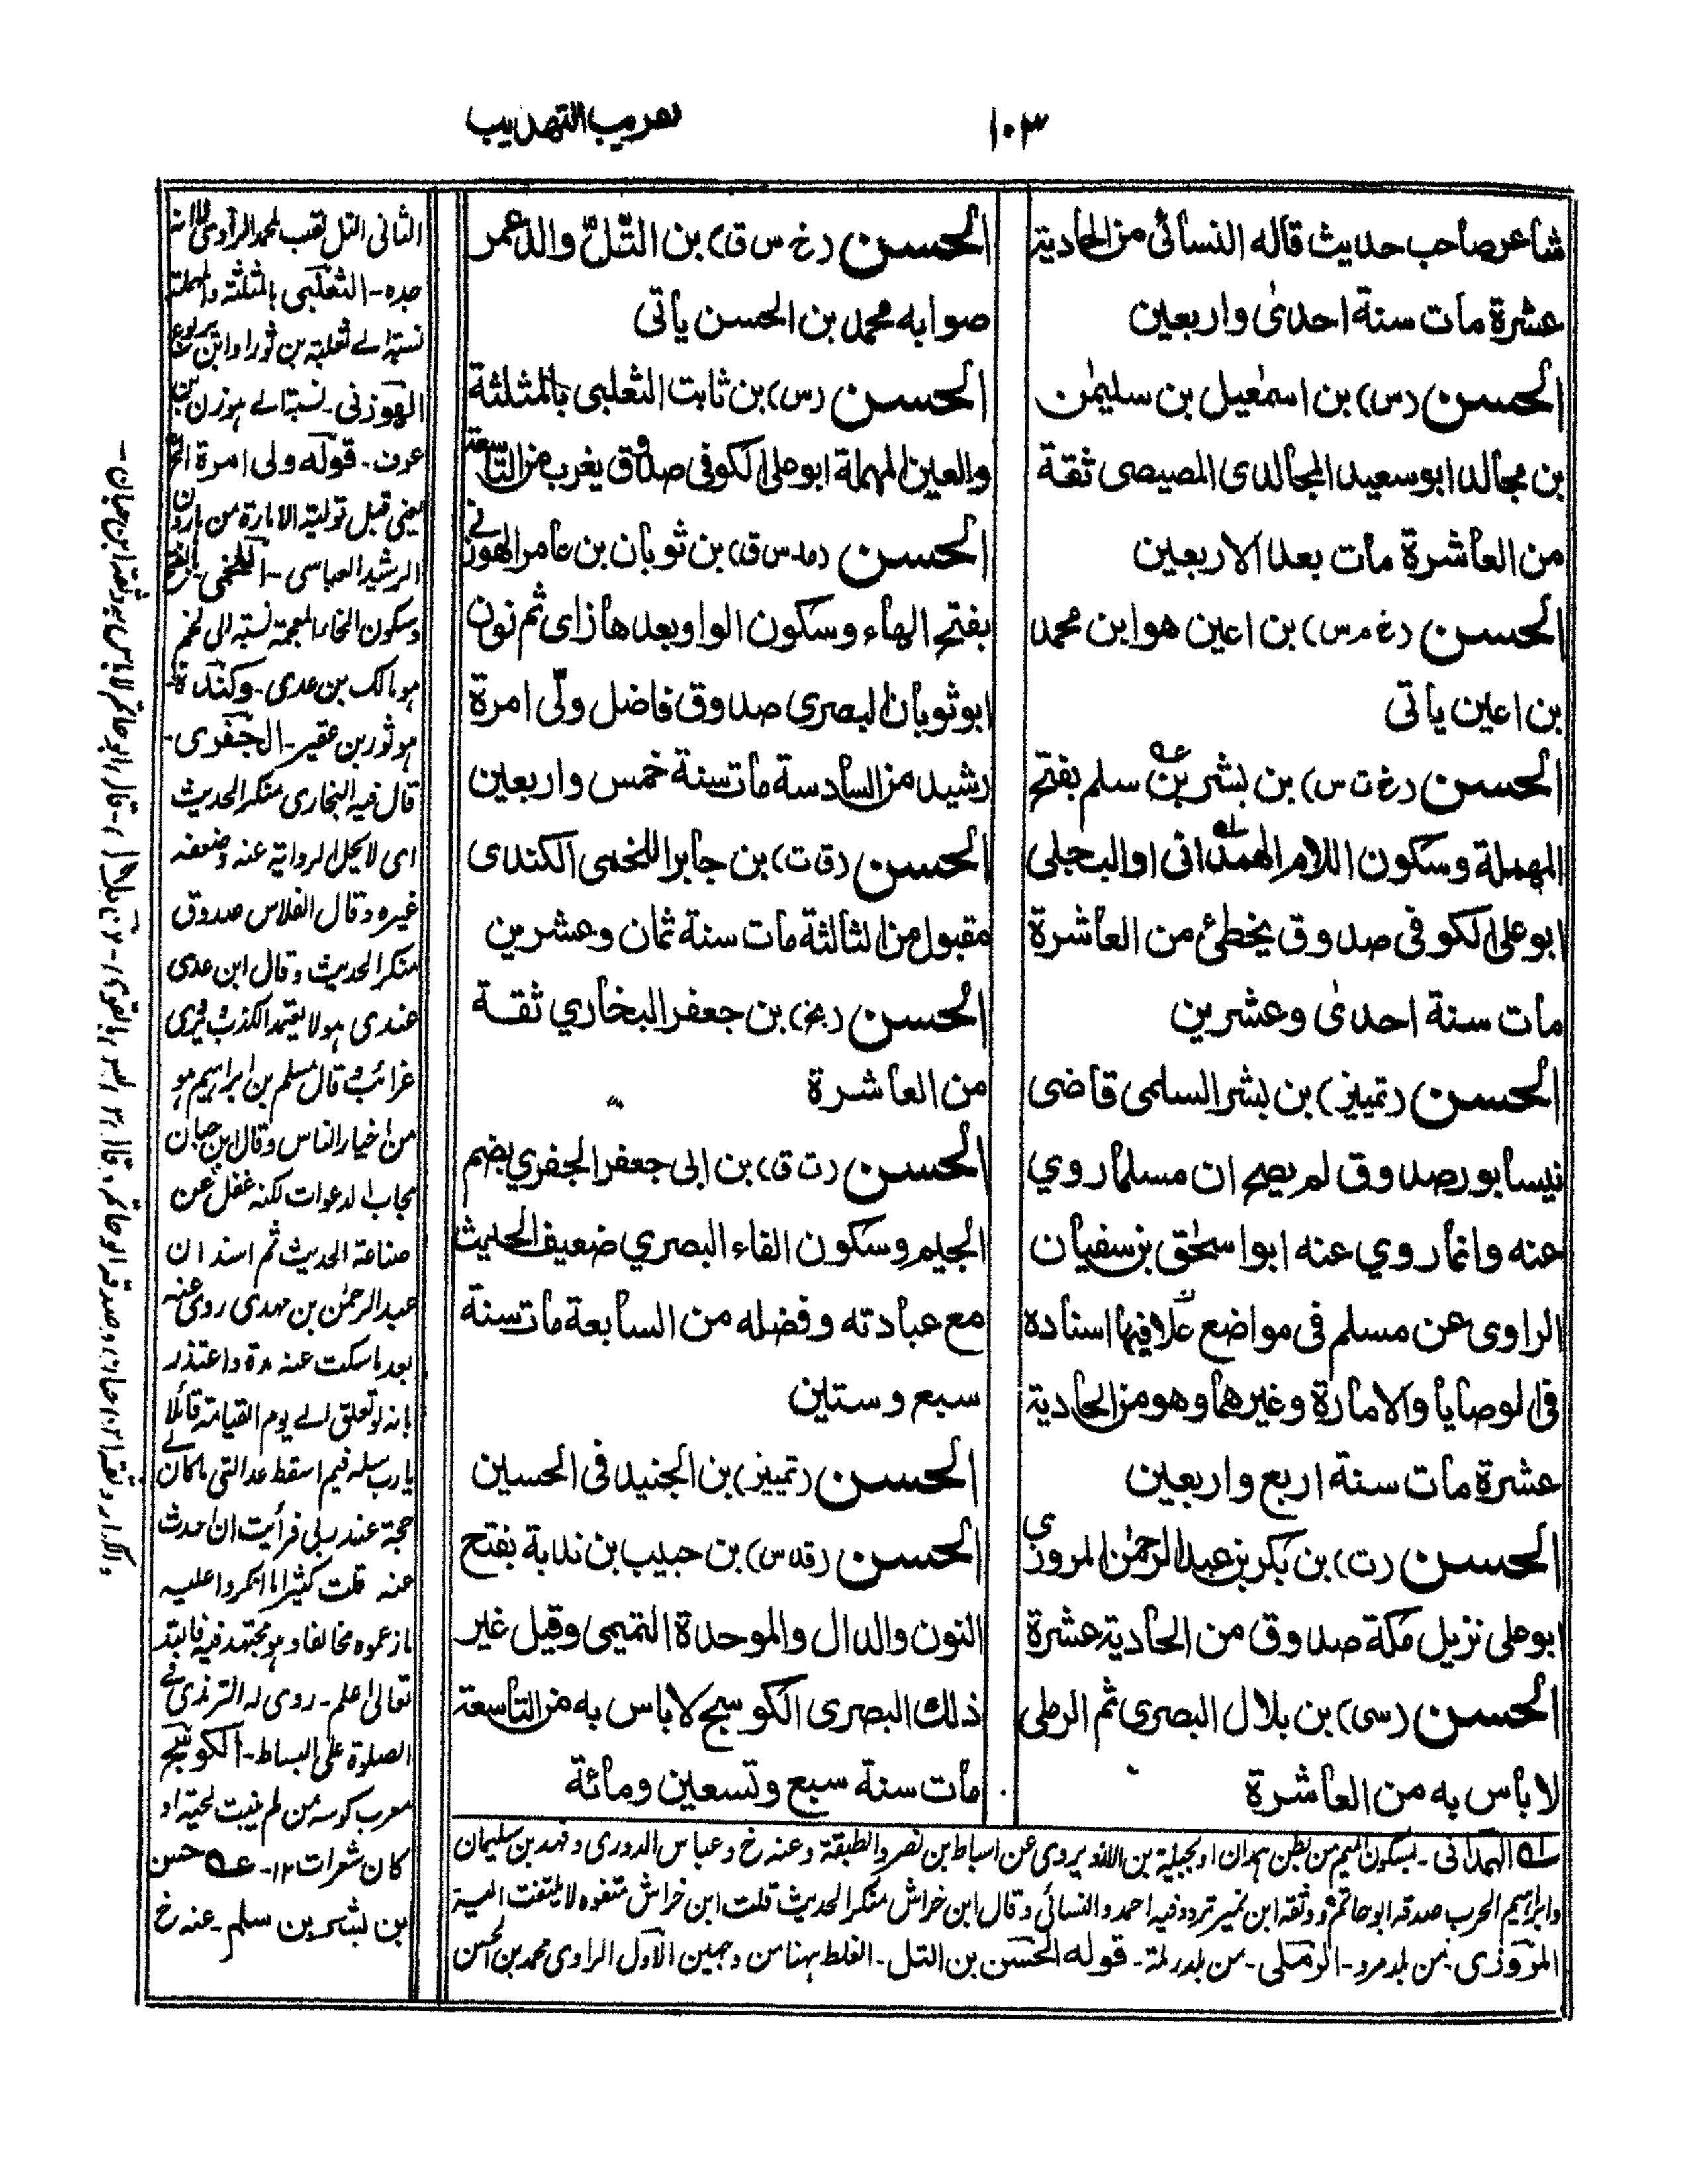 ١٠٣
تقريب التهذيب
شاعر صاحب حديث قاله النسائي من الحادية
عشرة مات سنة احدىٰ واربعين
الحسن (س) بن اسمٰعيل بن سليمٰن
بن مجالد ابو سعيد المجالدى المصيصى ثقة
من العاشرة مات بعد الاربعين
الحسن (خ م س) بن اعين هو ابن محمد
بن اعين ياتى
الحسن (خ ت س) بن بشر بن سلم بفتح
المهملة وسكون اللام الهمدانى او البجلى
ابو على الكوفى صدوق يخطئ من العاشرة
مات سنة احدىٰ وعشرين
الحسن (تمييز) بن بشر السلمى قاضى
نيسابور صدوق لم يصح ان مسلما روي
عنه وانما روي عنه ابو اسحٰق بن سفيان
الراوى عن مسلم فى مواضع علا فيها اسناده
فى الوصايا والامارة وغيرهما وهو من الحادية
عشرة مات سنة اربع واربعين
الحسن (ت) بن بكر بن عبد الرحمٰن المروزى
ابو على نزيل مكة صدوق من الحادية عشرة
الحسن (سى) بن بلال البصرى ثم الرملى
لاباس به من العاشرة
الحسن (خ س ق) بن التلّ والد عمر
صوابه محمد بن الحسن ياتى
الحسن (س) بن ثابت الثعلبى بالمثلثة
والعين المهملة ابو على الكوفى صدوق يغرب من التاسعة
الحسن (مد س ق) بن ثوبان بن عامر الهوزنى
بفتح الهاء وسكون الواو بعدها زاى ثم نون
ابو ثوبان البصرى صدوق فاضل ولّى امرة
رشيد من السادسة مات سنة خمس واربعين
الحسن (ق ت) بن جابر اللخمى الكندى
مقبول من الثالثة مات سنة ثمان وعشرين
الحسن (بخ) بن جعفر البخاري ثقة
من العاشرة
الحسن (ت ق) بن ابى جعفر الجفري بضم
الجيم وسكون الفاء البصري ضعيف الحديث
مع عبادته وفضله من السابعة مات سنة
سبع وستين
الحسن (تمييز) بن الجنيد فى الحسين
الحسن (قد س) بن حبيب بن ندبة بفتح
النون والدال والموحدة التميمى وقيل غير
ذلك البصرى الكوسج لاباس به من التاسعة
مات سنة سبع وتسعين ومائة
له الهمدانى - بسكون الميم من بطن همدان او بجيلة بن يروى عن اسباط بن نصر والطبقة وعنه خ وعباس الدورى وفهد بن سليمان
وابراهيم الحرب صدقه ابو حاتم ووثقه ابن نمير تردد فيه احمد والنسائى وقال ابن خراش منكر الحديث قلت ابن خراش متفوه لا يلتفت اليه
المروزى - من بلد مرو - الرملى - من بلد رملة - قوله الحسن بن التل - الغلط ههنا من وجهين الاول الراوى محمد بن الحسن
الثانى التل لقب لمحمد الراوى لا انه
جده - الثعلبى بالمثلثة والمهملة
نسبة الى ثعلبة بن ثور او ابن يربوع
الهوزنى - نسبة الى هوزن بن
عوف - قوله ولى امرة الخ
يعنى قبل تولية الامارة من هارون
الرشيد العباسى - اللخمى - بالفتح
وسكون الخاء المعجمة نسبة الى لخم
هو مالك بن عدى - وكندة
هو ثور بن عقير - الجفرى -
قال فيه البخارى منكر الحديث
اى لا يحل الرواية عنه وضعفه
غيره وقال الفلاس صدوق
منكر الحديث وقال ابن عدى
عندى هو لا يعتمد الكذب يروى
غرائب قال مسلم بن ابراهيم هو
من خيار الناس وقال ابن حبان
مجاب الدعوات لكنه غفل عن
صناعة الحديث ثم اسند ان
عبد الرحمٰن بن مهدى روى عنه
بعد ما سكت عنه مدة واعتذر
بانه لو تعلق الى يوم القيامة قائلا
يا رب سله فيم اسقط عدالتى ما كان لى
حجة عند ربى فرأيت ان احدث
عنه قلت كثيرا ما انكروا عليه
ما زعموه مخالفا وهو مجتهد فيه فالله
تعالى اعلم - روى له الترمذى فى
الصلوة على البساط - الكوسج
معرب كوسه من لم ينبت لحيته او
كان شعرات ١٢ - عه حسن
بن بشر بن سلم - عنه خ